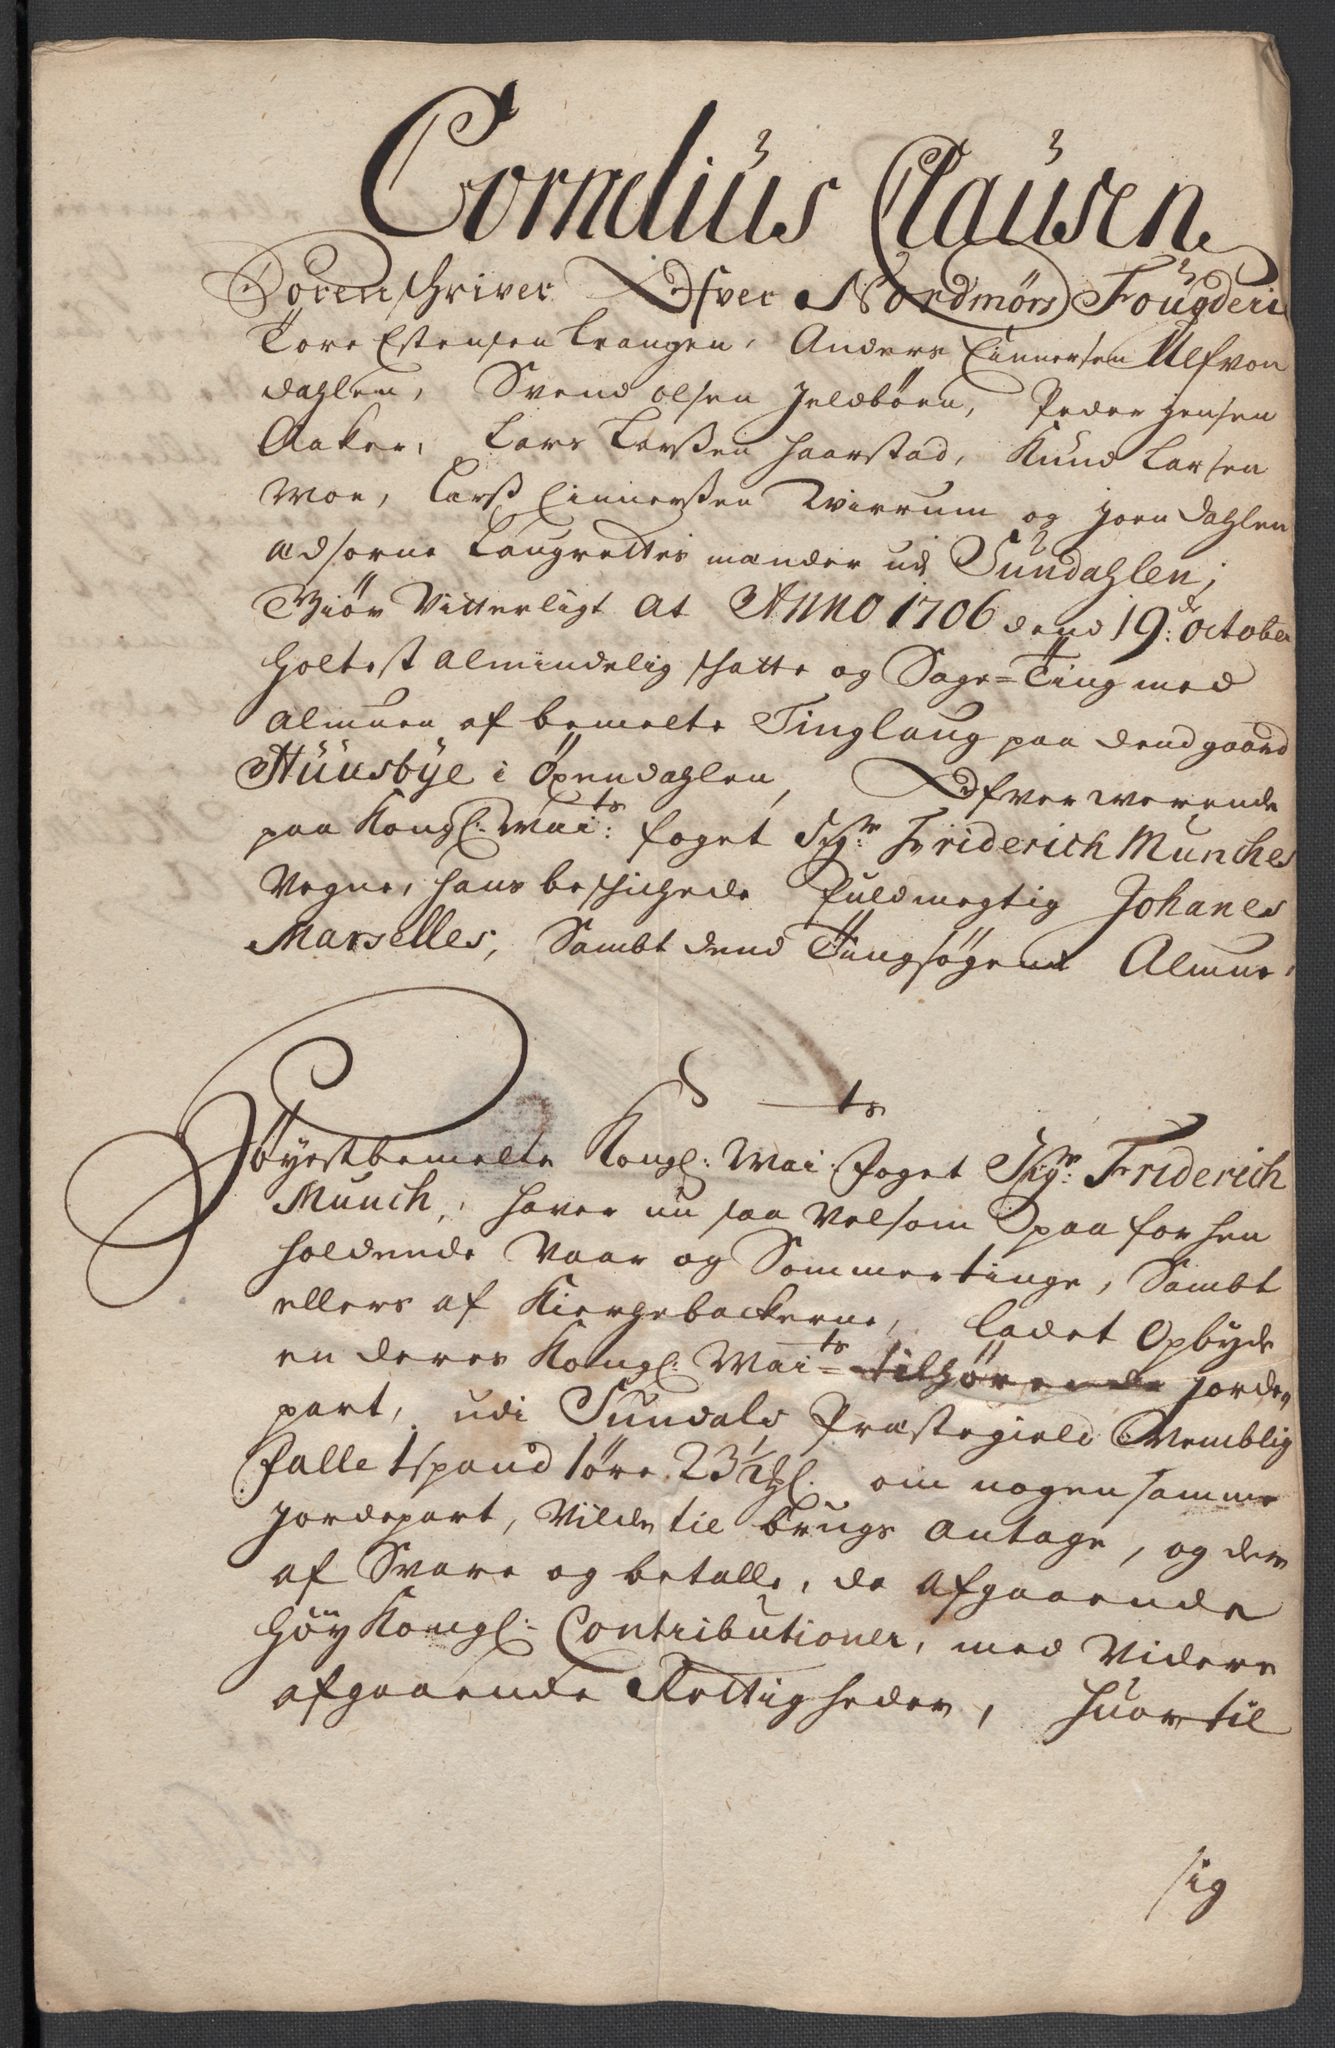 Cornelius Clausen
Sorenschriver Ofver Nordmørs Fougderi
Tore Estensen Trangen, Anders Einnersen Alfvon
dahlen, Svend olsen Jeldbøen, Peder Jensen
Aaker, Lars Larsen haarstad, Knud Larsen
Moe, Larss Einnerssen Tvirrum og joen dahlen
Edsorne Laugrettes mender udj Sundahlen;
Giør Vitterligt At Anno 1706 dend 19: de october
holtest almindelig schatte og Sage=Ting med
almuen af bemelte Tinglaug paa dend gaard
Huusbye i Øxendahlen, Ofverwerende
paa Kongl: Mai:ts foget Sigr: Friderich Munches
Vegne, hans beschichede fuldmegtig Johanes
Marselles, Sambt dend Tingsøgend Almue,
Høyestbemelte Kongl: Mai:ts foget Sigr: Friderich
Munch, hafver nu saa velsom paa forhen
holdende Vaar og Sommertinge, Sambt
ellers af Kierchebackerne, ladet Opbyde
en deres Kongl: Mai:ts tilhørende jorde
part, udi Sundals Præstegield Nemblig
Falle 1 spand 1 øre 23 1/2 mkl: om nogen samme
jordepart, Vilde til brugs antage, og der
af Svare og betalle, de afgaaende
høy Kongl: Contributioner, med Videre
afgaaende Rettigheder, huortil
sig